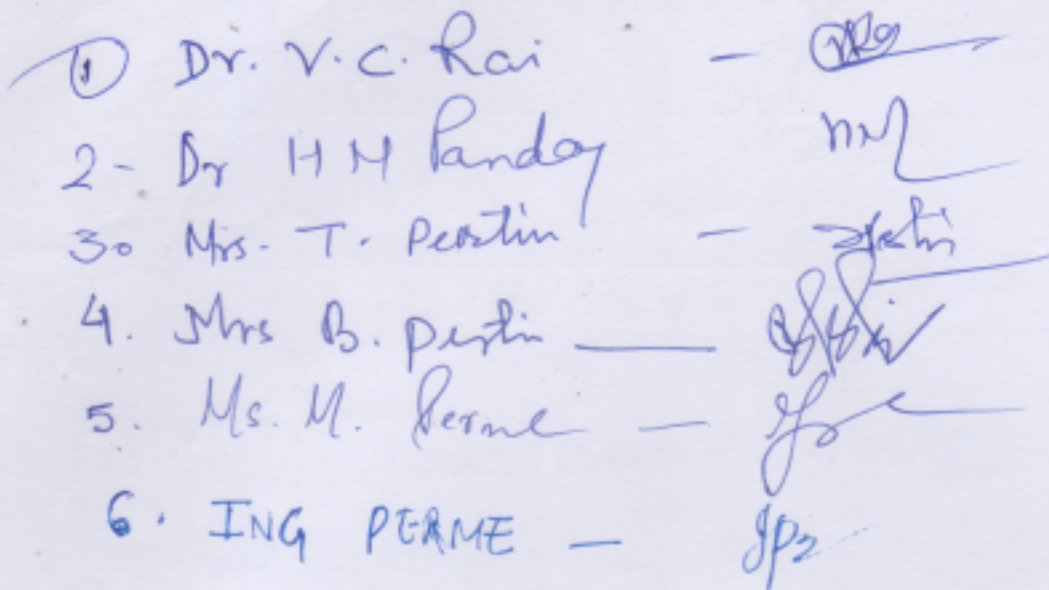 1 Dr. V. C. Rai -
2- Dr H M Panday
3. Mrs. T. Perstin -
4. Mrs B. Pertin —
5. Ms. M. Perme -
6. ING PERME -